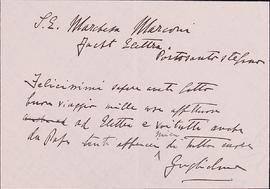 S. E. Marchesa Marconi
Yacht Elettra
Portosanto Stefano
Felicissimi sapere avete fatto
buon viaggio mille cose affettuose
ad Elettra e voi tutte anche
da Papà tanti affettuosi di tutto cuore
miei
Guglielmo